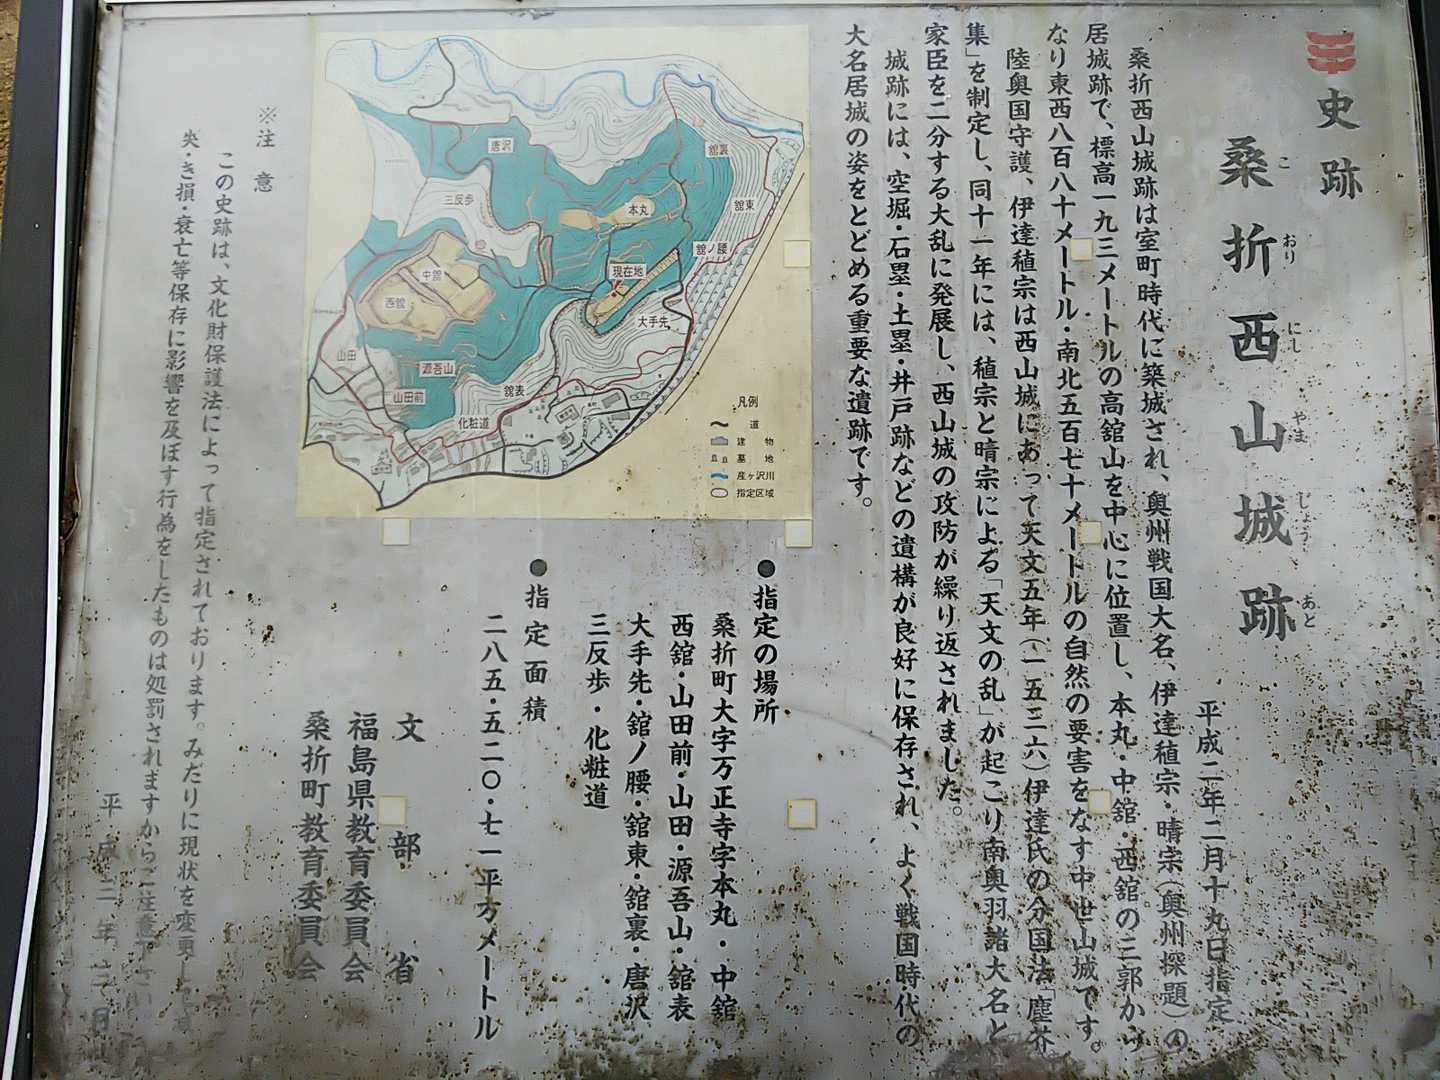 史跡
桑折西山城跡
こ おり にし やま じょう あと
平成二年二月十九日指定
桑折西山城跡は室町時代に築城され、奥州戦国大名、伊達稙宗・晴宗（奥州探題）の
居城跡で、標高一九三メートルの高舘山を中心に位置し、本丸・中舘・西舘の三郭から
なり東西八百八十メートル・南北五百七十メートルの自然の要害をなす中世山城です。
陸奥国守護、伊達稙宗は西山城にあって天文五年（一五三六）伊達氏の分国法「塵芥
集」を制定し、同十一年には、稙宗と晴宗による「天文の乱」が起こり南奥羽諸大名と
家臣を二分する大乱に発展し、西山城の攻防が繰り返されました。
城跡には、空堀・石塁・土塁・井戸跡などの遺構が良好に保存され、よく戦国時代の
大名居城の姿をとどめる重要な遺跡です。
●指定の場所
桑折町大字万正寺字本丸・中舘
西舘・山田前・山田・源吾山・舘表
大手先・舘ノ腰・舘東・舘裏・唐沢
三反歩・化粧道
●指定面積
二八五・五二〇・七一平方メートル
文部省
福島県教育委員会
桑折町教育委員会
※注意
この史跡は、文化財保護法によって指定されております。みだりに現状を変更し
き損・衰亡等保存に影響を及ぼす行為をしたものは処罰されますからご注意下さい
平成三年三月
唐沢
舘裏
三反歩
本丸
舘東
舘ノ腰
中舘
現在地
西舘
大手先
山田
源吾山
舘表
山田前
化粧道
凡例
道
建物
墓地
産ヶ沢川
指定区域